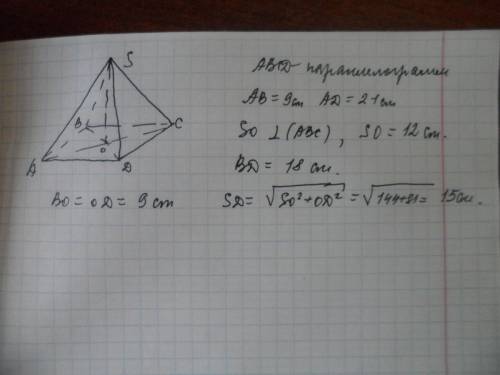 S
B
C
O
A
D
ABCD параллелограмм
AB = 9 cm AD = 21 cm
SO ⊥ (ABC), SO = 12 cm.
BD = 18 cm.
BO = OD = 9 cm
SD = √SO²+OD² = √144+81 = 15 cm.